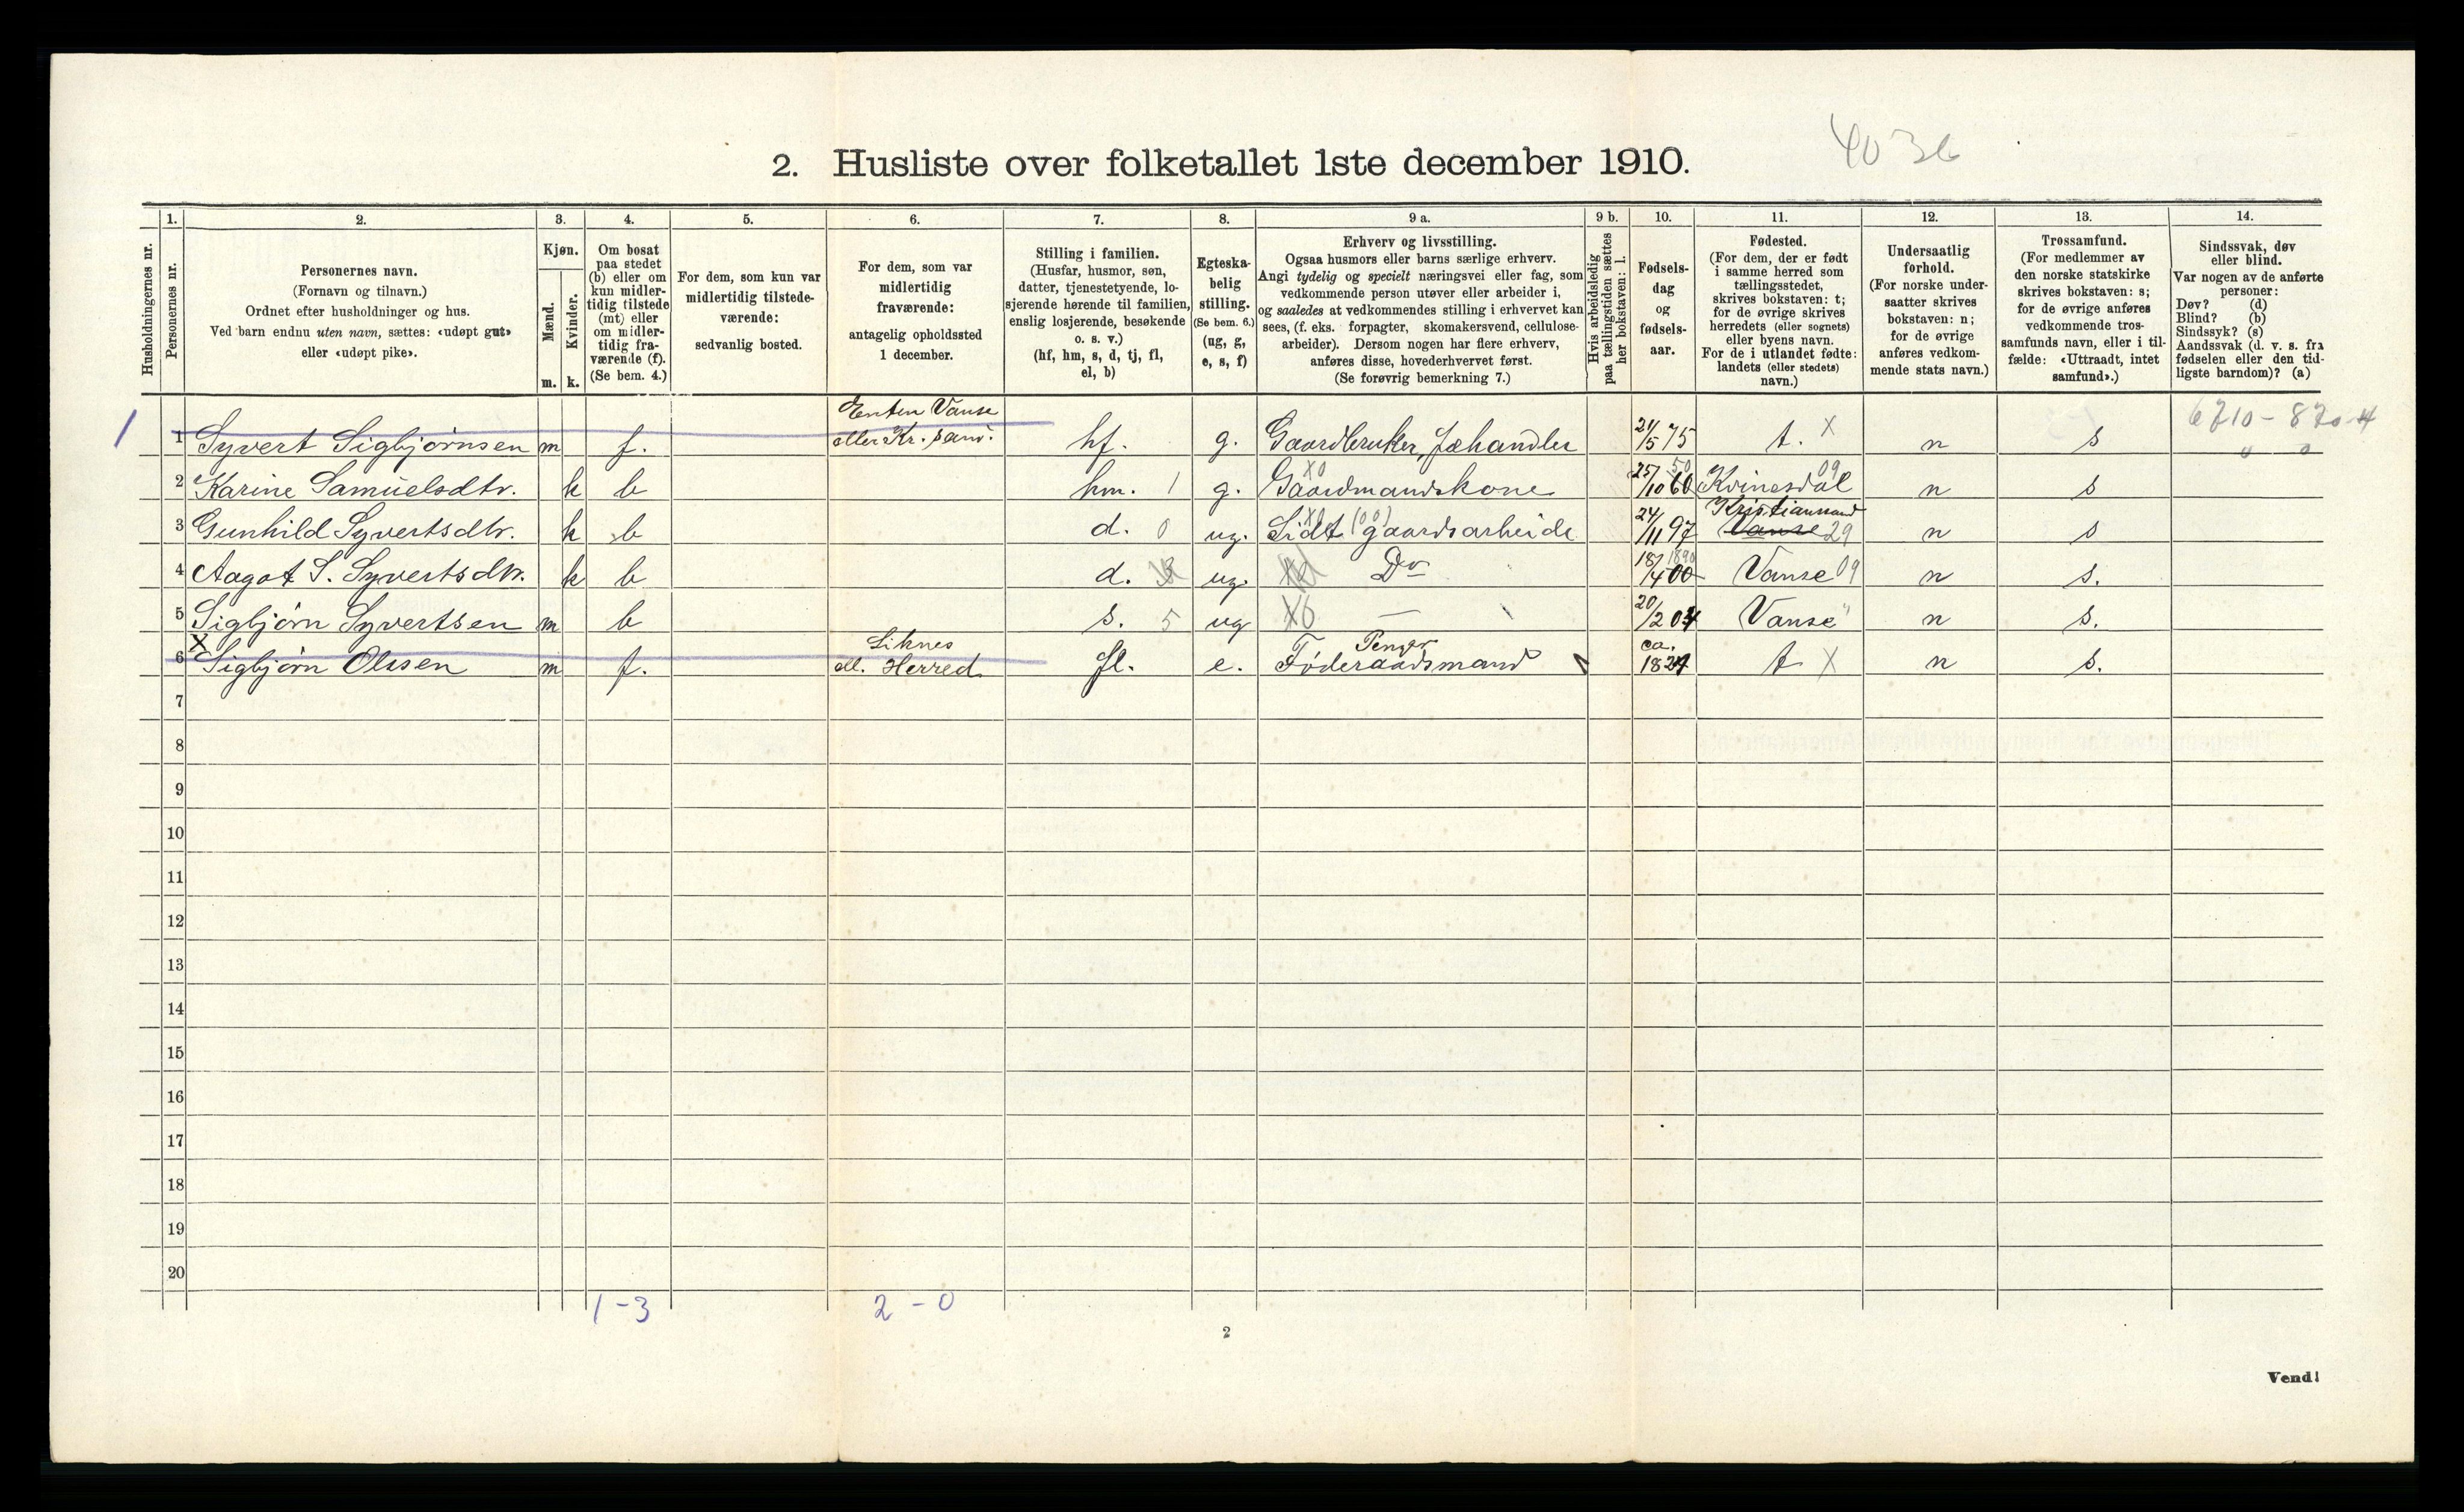 4036
2. Husliste over folketallet 1ste december 1910.
1. 2. 3. 4. 5. 6. 7. 8. 9 a. 9 b. 10. 11. 12. 13. 14.
Husholdningernes nr.
Personernes nr.
Personernes navn.
(Fornavn og tilnavn.)
Ordnet efter husholdninger og hus.
Ved barn endnu uten navn, sættes: «udøpt gut»
eller «udøpt pike».
Kjøn.
Mænd.
Kvinder.
m. k.
Om bosat
paa stedet
(b) eller om
kun midler-
tidig tilstede
(mt) eller
om midler-
tidig fra-
værende (f).
(Se bem. 4.)
For dem, som kun var
midlertidig tilstede-
værende:
sedvanlig bosted.
For dem, som var
midlertidig
fraværende:
antagelig opholdssted
1 december.
Stilling i familien.
(Husfar, husmor, søn,
datter, tjenestetyende, lo-
sjerende hørende til familien,
enslig losjerende, besøkende
o. s. v.)
(hf, hm, s, d, tj, fl,
el, b)
Egteska-
belig
stilling.
(Se bem. 6.)
(ug, g,
e, s, f)
Erhverv og livsstilling.
Ogsaa husmors eller barns særlige erhverv.
Angi tydelig og specielt næringsvei eller fag, som
vedkommende person utøver eller arbeider i,
og saaledes at vedkommendes stilling i erhvervet kan
sees, (f. eks. forpagter, skomakersvend, cellulose-
arbeider). Dersom nogen har flere erhverv,
anføres disse, hovederhvervet først.
(Se forøvrig bemerkning 7.)
Hvis arbeidsledig
paa tællingstiden sættes
her bokstaven: l.
Fødsels-
dag
og
fødsels-
aar.
Fødested.
(For dem, der er født
i samme herred som
tællingsstedet,
skrives bokstaven: t;
for de øvrige skrives
herredets (eller sognets)
eller byens navn.
For de i utlandet fødte:
landets (eller stedets)
navn.)
Undersaatlig
forhold.
(For norske under-
saatter skrives
bokstaven: n;
for de øvrige
anføres vedkom-
mende stats navn.)
Trossamfund.
(For medlemmer av
den norske statskirke
skrives bokstaven: s;
for de øvrige anføres
vedkommende tros-
samfunds navn, eller i til-
fælde: «Uttraadt, intet
samfund».)
Sindssvak, døv
eller blind.
Var nogen av de anførte
personer:
Døv? (d)
Blind? (b)
Sindssyk? (s)
Aandssvak (d. v. s. fra
fødselen eller den tid-
ligste barndom)? (a)
Enten Vanse 6710-870-4
1 1 Syvert Sigbjørnsen m f. eller Kr. sand. hf. g. Gaardbruker, Fæhandler 21/5 75 t. X n s
2 Karine Samuelsdtr. k b hm. 1 g. Gaardmandskone 25/10 60 Kvinesdal 09 n s
Kristianssand
3 Gunhild Syvertsdtr. k b d. 0 ug. Lidt gaardsarbeide 24/11 97 Vanse 29 n s
4 Aagot S. Syvertsdtr. k b d. ug. Do 18/4 00 Vanse 09 n s.
5 Sigbjørn Syvertsen m b s. 5 ug X0 — 20/2 04 Vanse " n s.
X Liknes ca.
6 Sigbjørn Olssen m f. ell. Herred fl. e. Føderaadsmand 1824 t X n s.
7
8
9
10
11
12
13
14
15
16
17
18
19
20
1-3 2-0
2
Vend!